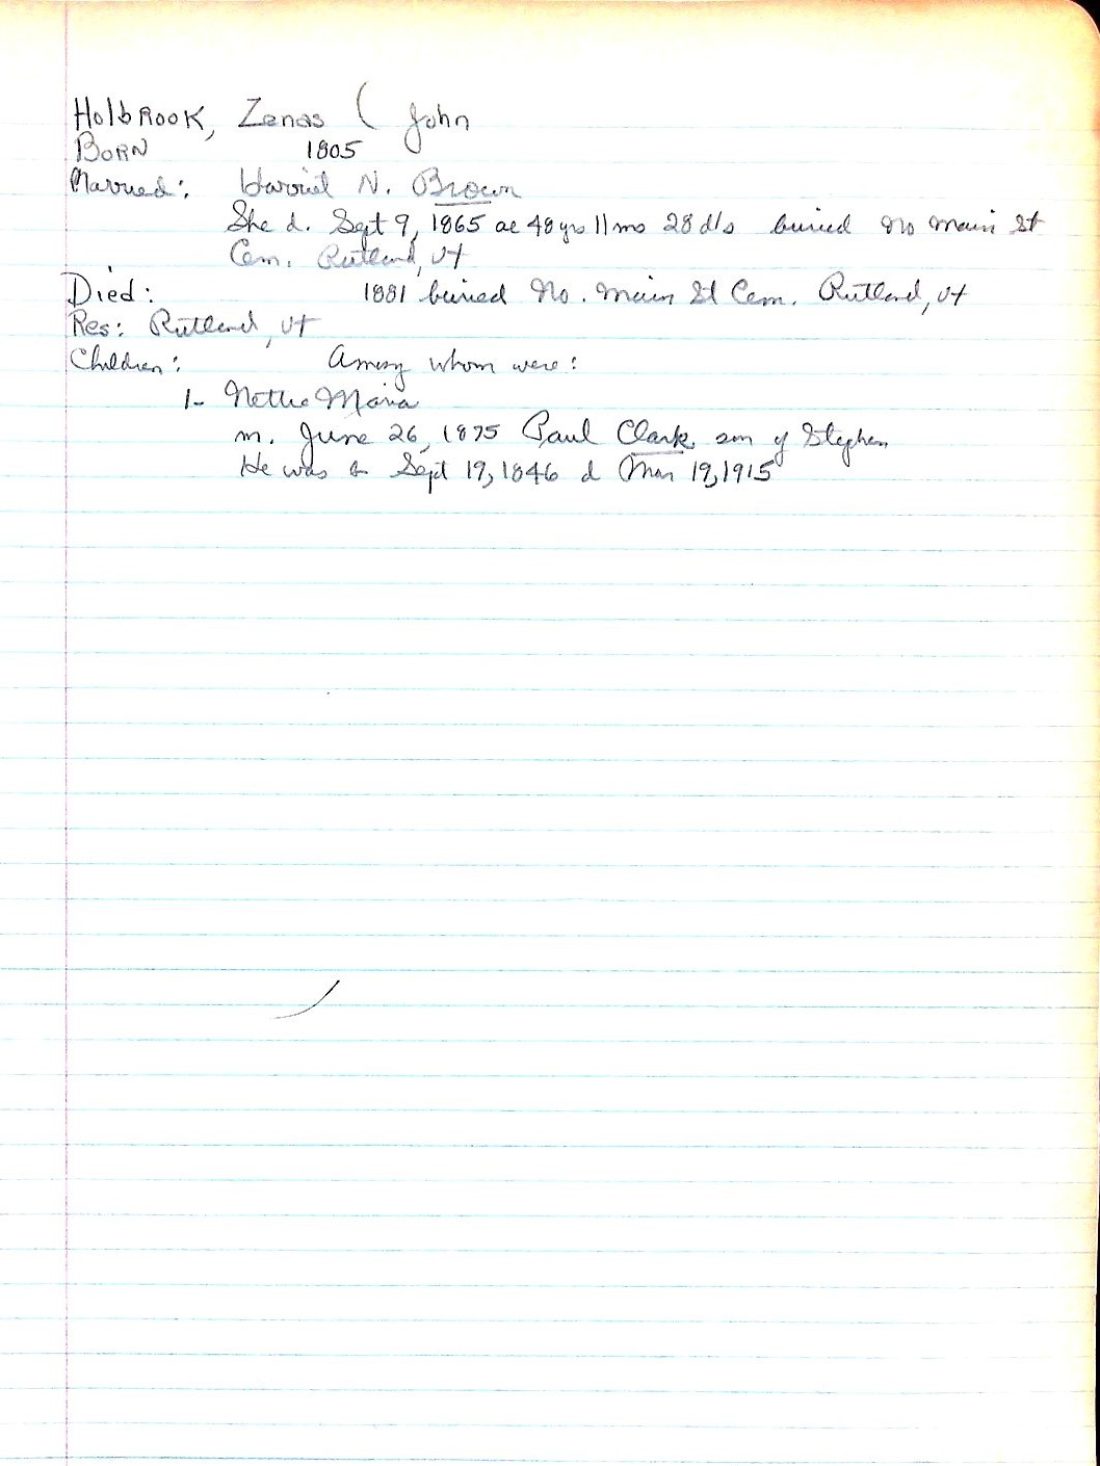 Holbrook, Zenas ( John
Born 1805
Married: Harriet N. Brown
She d. Sept 9, 1865 ae 48 yrs 11 ms 28 d/s buried No Main St
Cem. Rutland, Vt
Died: 1881 buried No. Main St Cem. Rutland, Vt
Res: Rutland, Vt
Children: Among whom were:
1- Nettie Maria
m. June 26, 1875 Paul Clark son of Stephen
He was b Sept 19, 1846 d Mar 19, 1915